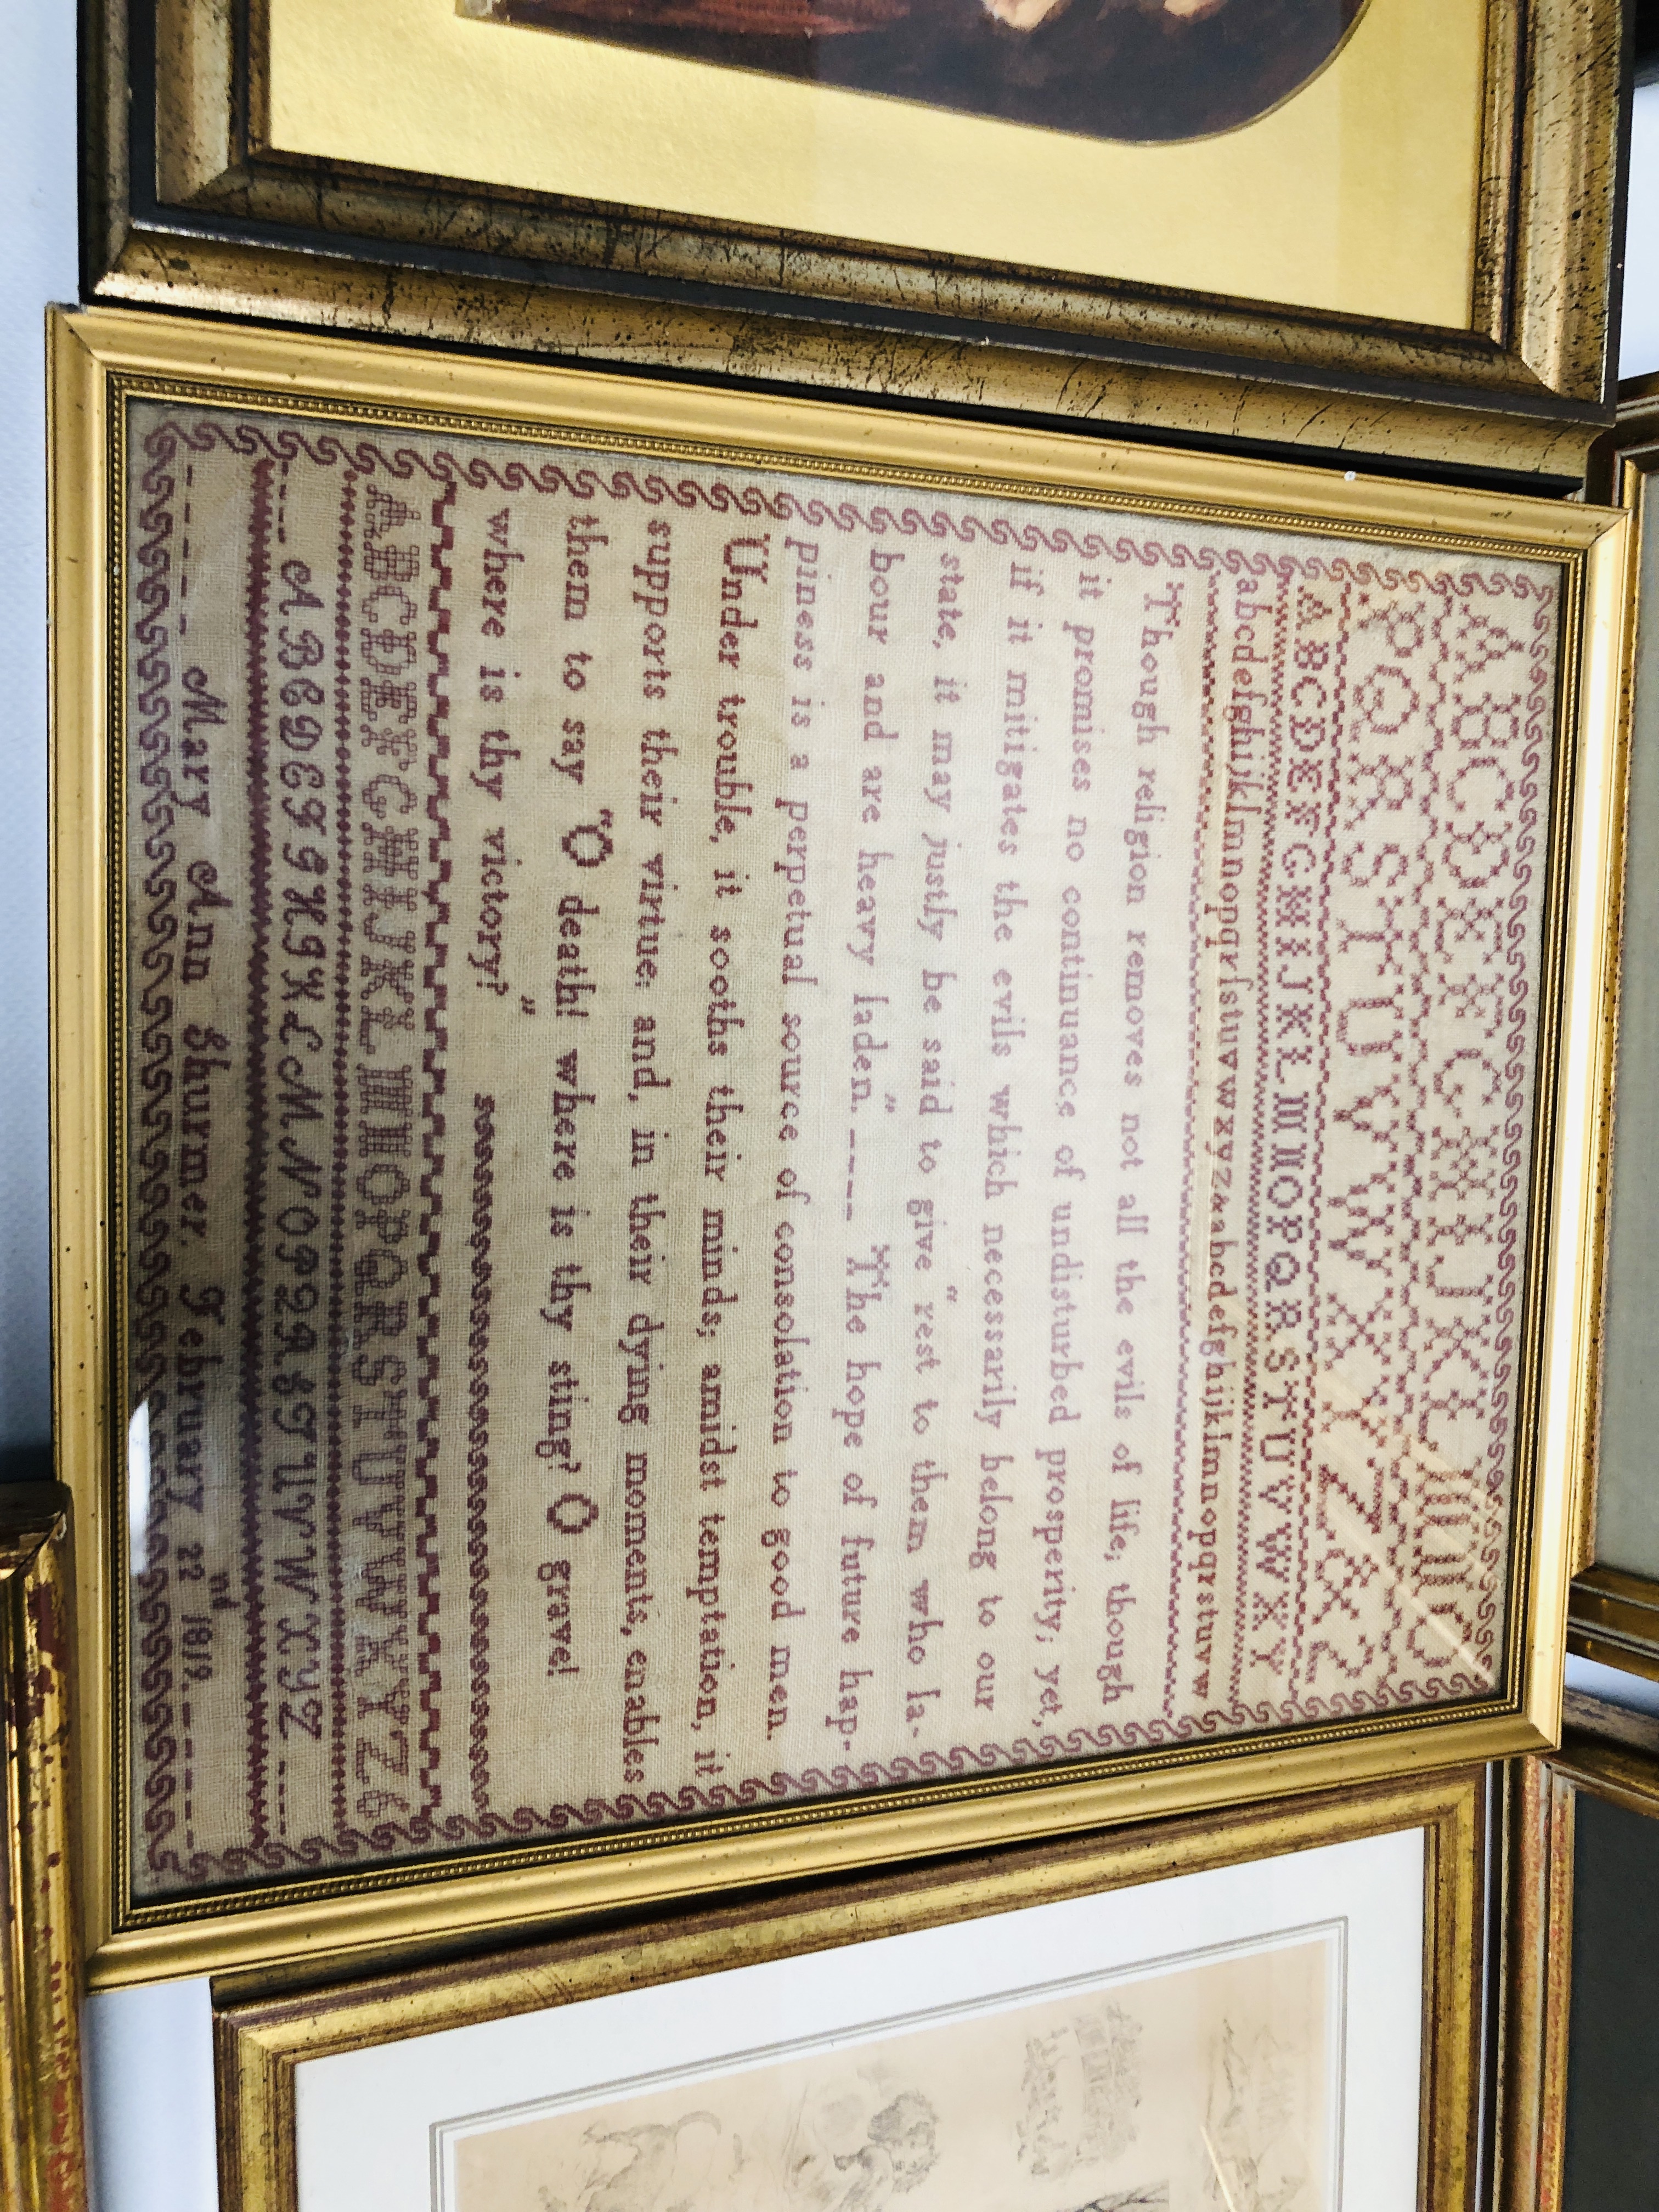 A B C D E F G H I J K L M N O
P Q R S T U V W X Y Z & Z
A B C D E F G H I J K L M N O P Q R S T U V W X Y
abcdefghijklmnopqrſstuvwxyz&abcdefghijklmnopqrstuvw
Though religion removes not all the evils of life; though
it promises no continuance of undisturbed prosperity; yet,
if it mitigates the evils which necessarily belong to our
state, it may justly be said to give "rest to them who la-
bour and are heavy laden." ---- The hope of future hap-
piness is a perpetual source of consolation to good men.
Under trouble, it sooths their minds; amidst temptation, it
supports their virtue; and, in their dying moments, enables
them to say "O death! where is thy sting? O grave!
where is thy victory?"
A B C D E F G H I J K L M N O P Q R S T U V W X Y Z &
A B C D E F G H I K L M N O P Q R S T U V W X Y Z
Mary Ann Shurmer. February 22nd 1812.